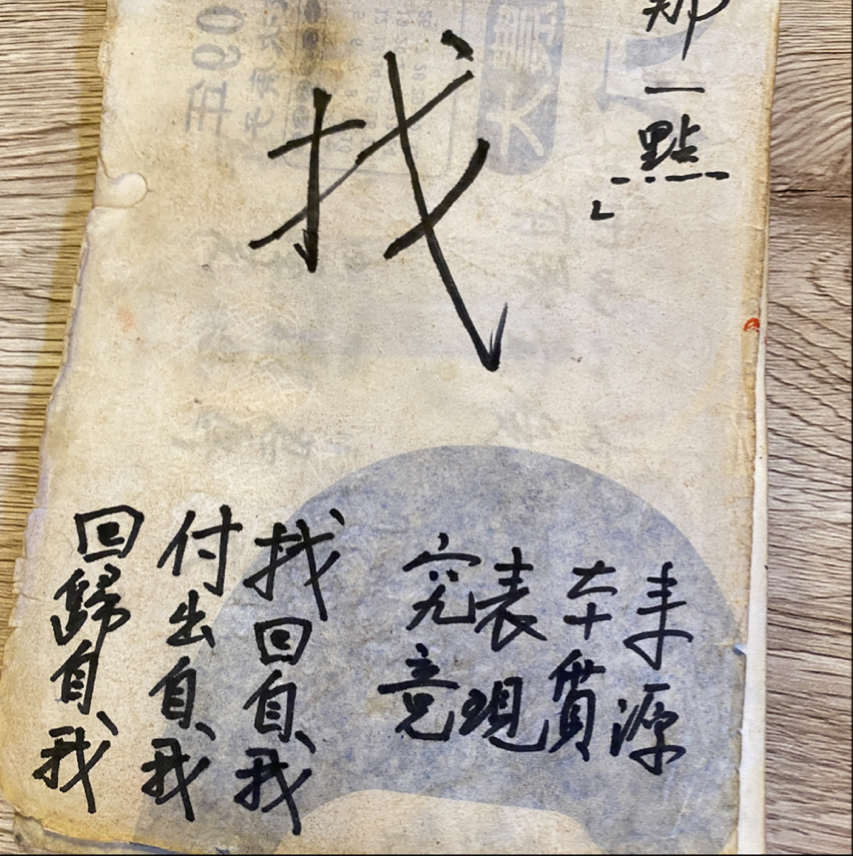 那一點」
找
来源
本質
表現
究竟
找回自我
付出自我
回歸自我